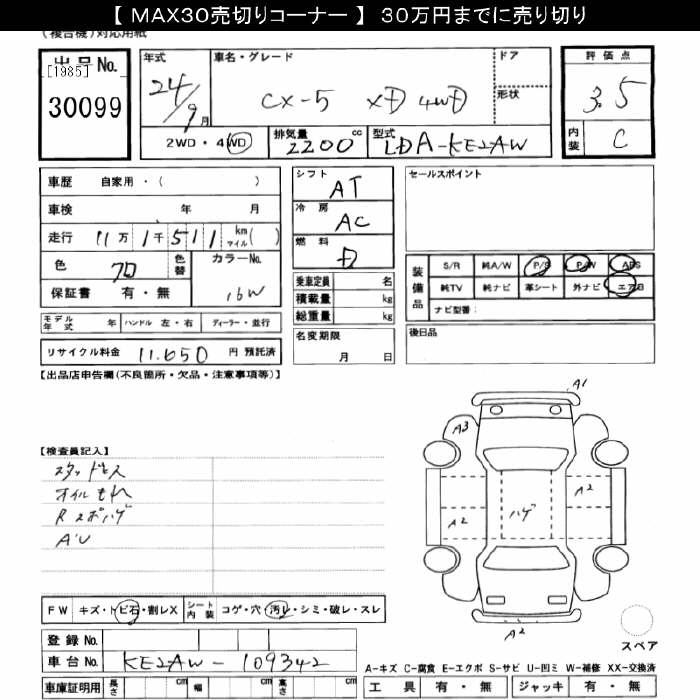 【 MAX30売切りコーナー 】 30万円までに売り切り
(複合機)対応用紙
出品No.
[1985]
30099
年式
24/9月
車名・グレード
CX-5 XD 4WD
ドア
形状
評価点
3.5
内装 C
2WD・4WD
排気量 2200 cc
型式 LDA-KE2AW
車歴 自家用・( )
車検 年 月
走行 11万1千511 km マイル( )
色 クロ
色替
カラーNo. 16W
保証書 有・無
モデル年式 年 ハンドル 左・右 ディーラー・並行
リサイクル料金 11.650 円 預託済
シフト AT
冷房 AC
燃料 D
乗車定員 名
積載量 kg
総重量 kg
名変期限
月 日
セールスポイント
装備品
S/R 純A/W P/S P/W ABS
純TV 純ナビ 革シート 外ナビ エアB
ナビ型番:
後日品
【出品店申告欄(不良箇所・欠品・注意事項等)】
【検査員記入】
スタッドレス
オイルもれ
Rスポハゲ
A'U
A1
A3
A2
A2
ハゲ
A2
FW キズ・トビ石・割レX
シート内装 コゲ・穴・汚レ・シミ・破レ・スレ
登録No.
車台No. KE2AW-109342
車庫証明用 長さ cm 幅 cm 高さ cm
スペア
A-キズ C-腐食 E-エクボ S-サビ U-凹ミ W-補修 XX-交換済
工具 有・無 ジャッキ 有・無